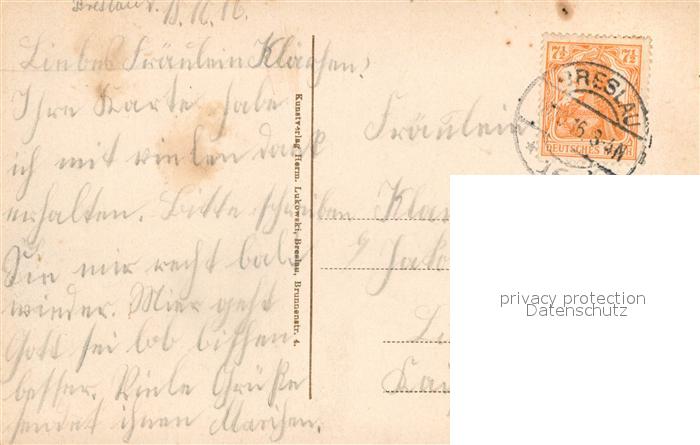 Breslau d. 11.11.16.
Liebes Fräulein Klärchen,
Ihre Karte habe
ich mit vielen dank
erhalten. Bitte schreiben
Sie mir recht bald
wieder. Mier geht
Gott sei lob bischen
besser. Viele Grüße
sendet ihnen Marichen.
Kunstverlag Herm. Lukowski, Breslau, Brunnenstr. 4.
7½ 7½
DEUTSCHES REICH
BRESLAU
Fräulein
privacy protection
Datenschutz